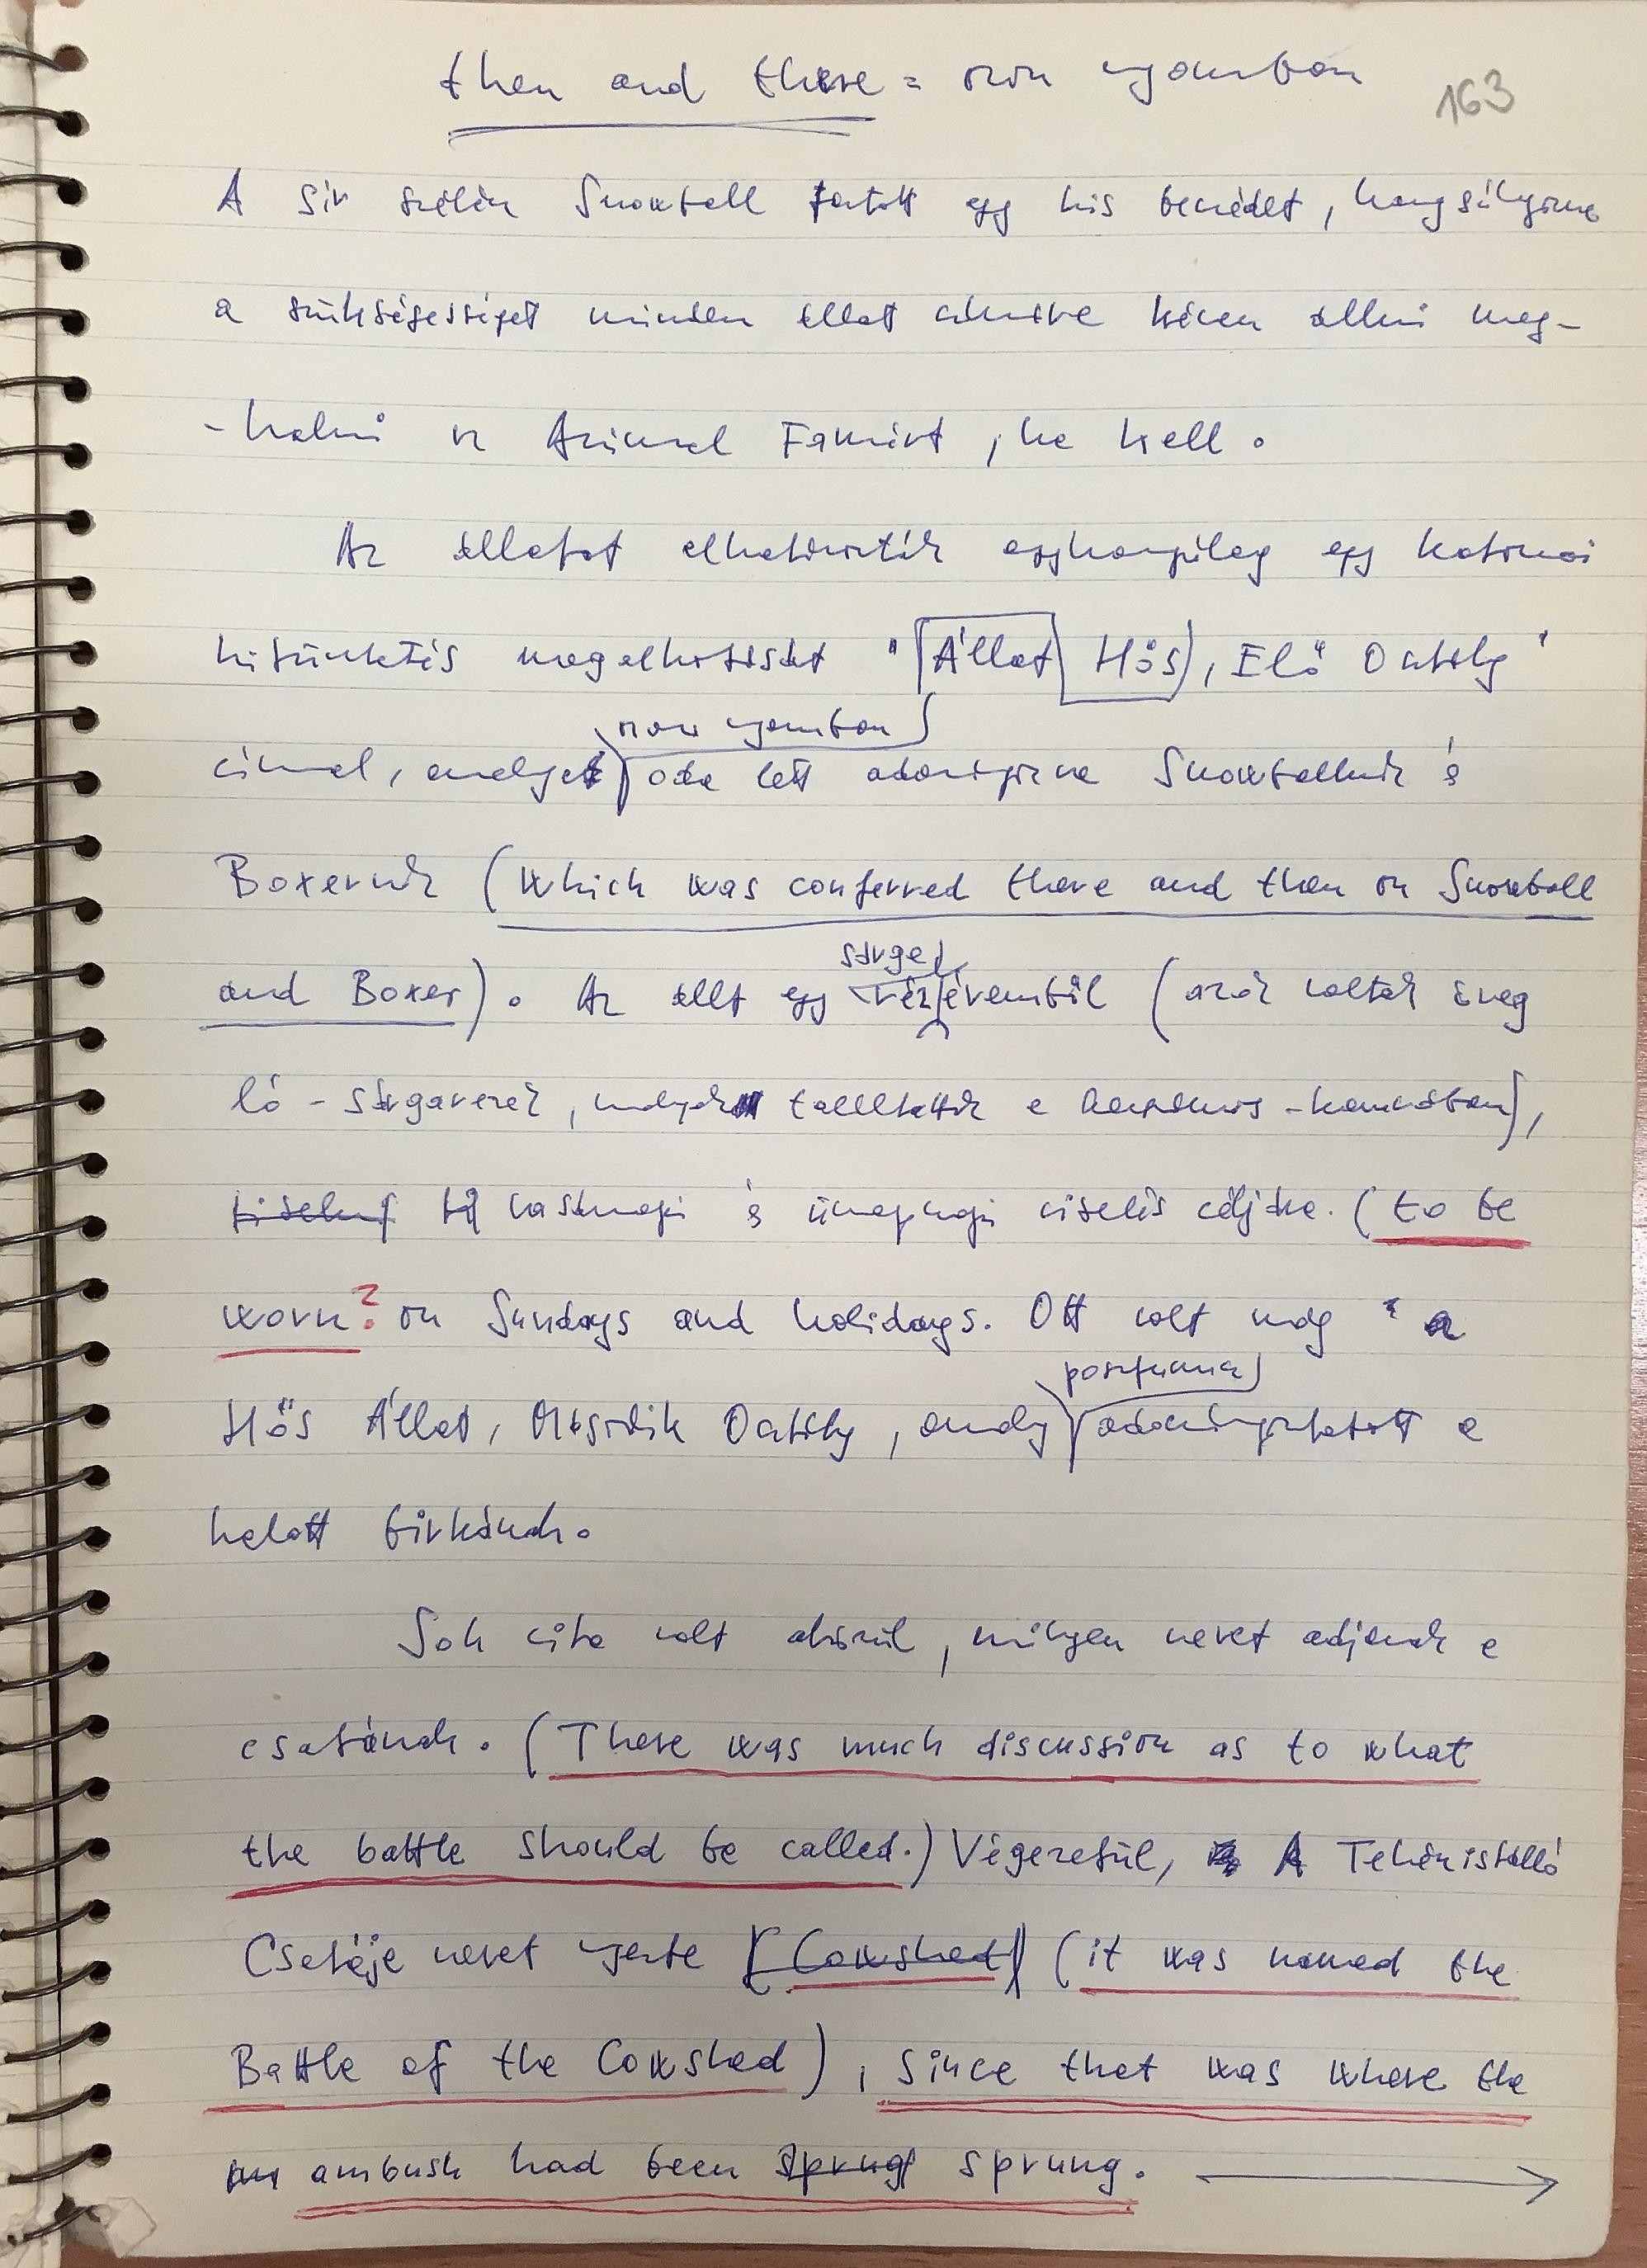 then and there = azon nyomban
163
A sír szélén Snowball tartott egy kis beszédet, hangsúlyozva
a szükségességet minden állat számára készen állni meg-
-halni az Animal Farmért, ha kell.
Az állatok elhatározták egyhangúlag egy katonai
kitüntetés megalkotását "Állat Hős, Első Osztály"
azon nyomban
címmel, amelyet oda lett adományozva Snowballnak és
Boxernak (which was conferred there and then on Snowball
sárga
and Boxer). Az állt egy rézéremből (azok voltak öreg
ló-sárgarezek, melyek találtattak a szerszámos-kamrában),
vasárnapi és ünnepnapi viselés céljára. (to be
worn? on Sundays and holidays. Ott volt még "a
posztumusz
Hős Állat, Második Osztály, amely adományoztatott a
halott birkának.
Sok vita volt arról, milyen nevet adjanak a
csatának. (There was much discussion as to what
the battle should be called.) Végezetül, A Tehénistálló
Csatája nevet nyerte (Cowshed) (it was named the
Battle of the Cowshed), since that was where the
ambush had been sprung sprung.